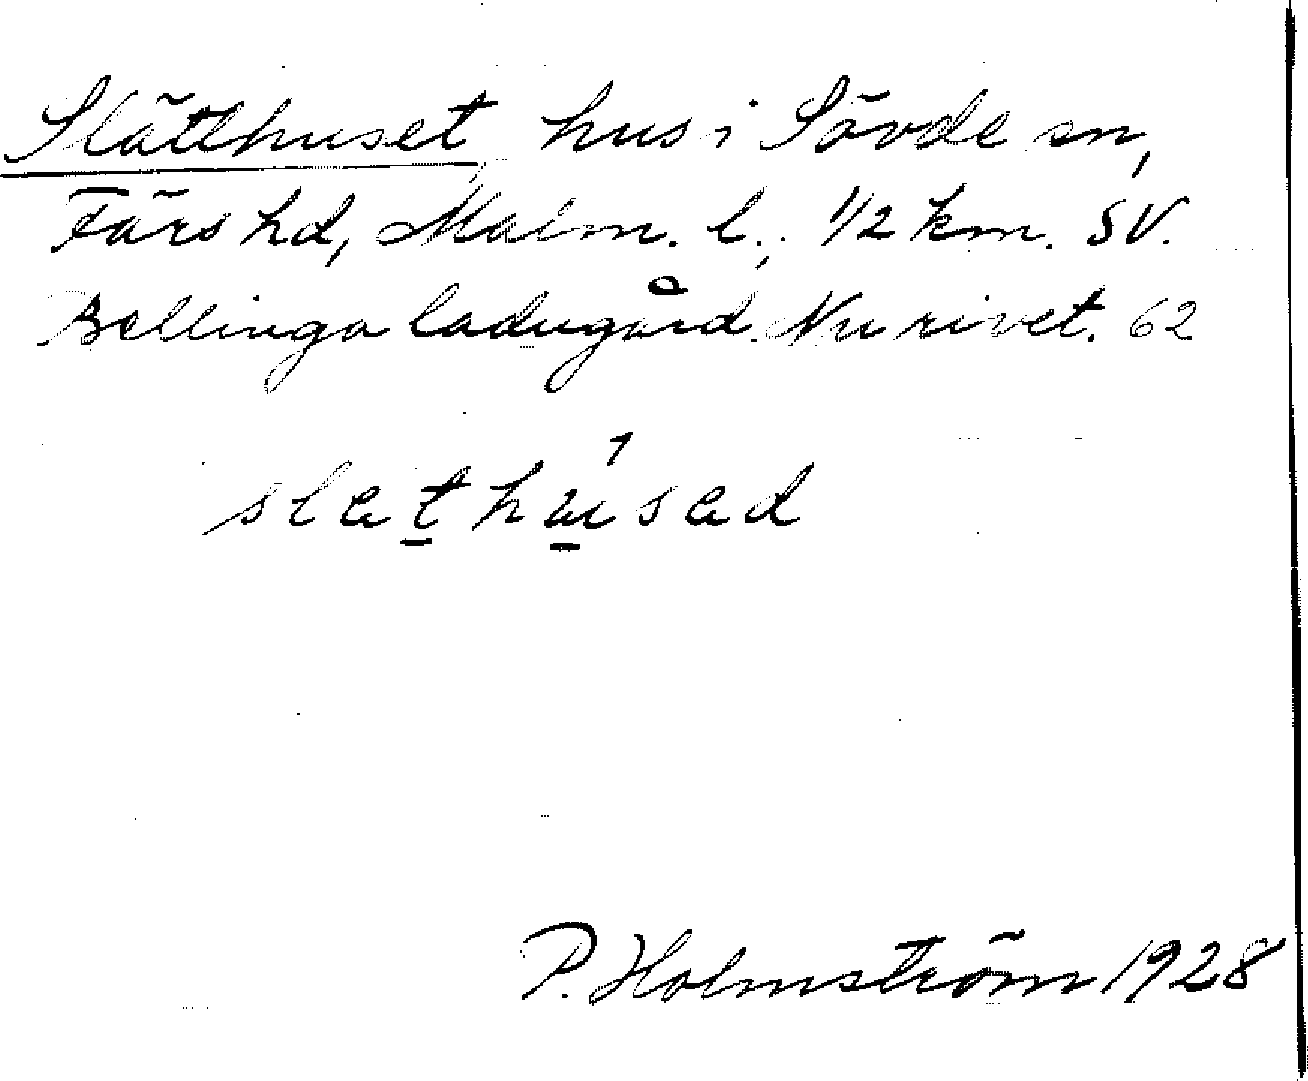 Slätthuset, hus i Sövde sn,
Färs hd, Malm. l., 1/2 km. SV.
Bellinga ladugård. Nu rivet. 62
P. Holmström 1928